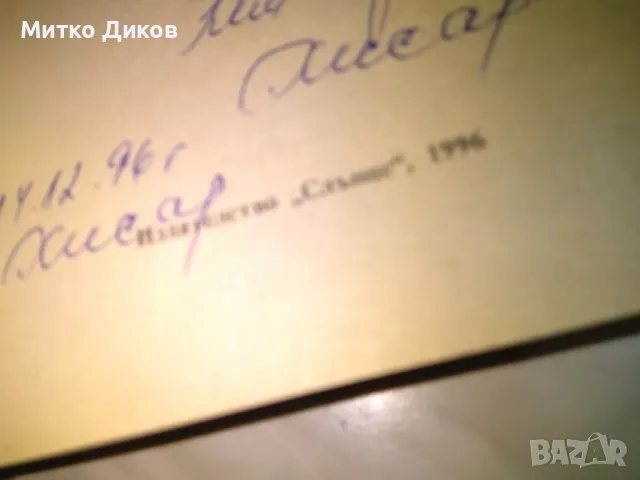 Митко Диков
Хисар
14.12.96 г
Хисар
Издателство „Слънце", 1996
BAZAR